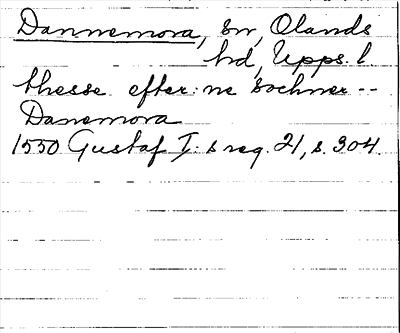 Dannemora, sn, Olands
hd, Upps. l
thesse efter:ne sochner --
Danemora
1550 Gustaf I:s reg. 21, s. 304.